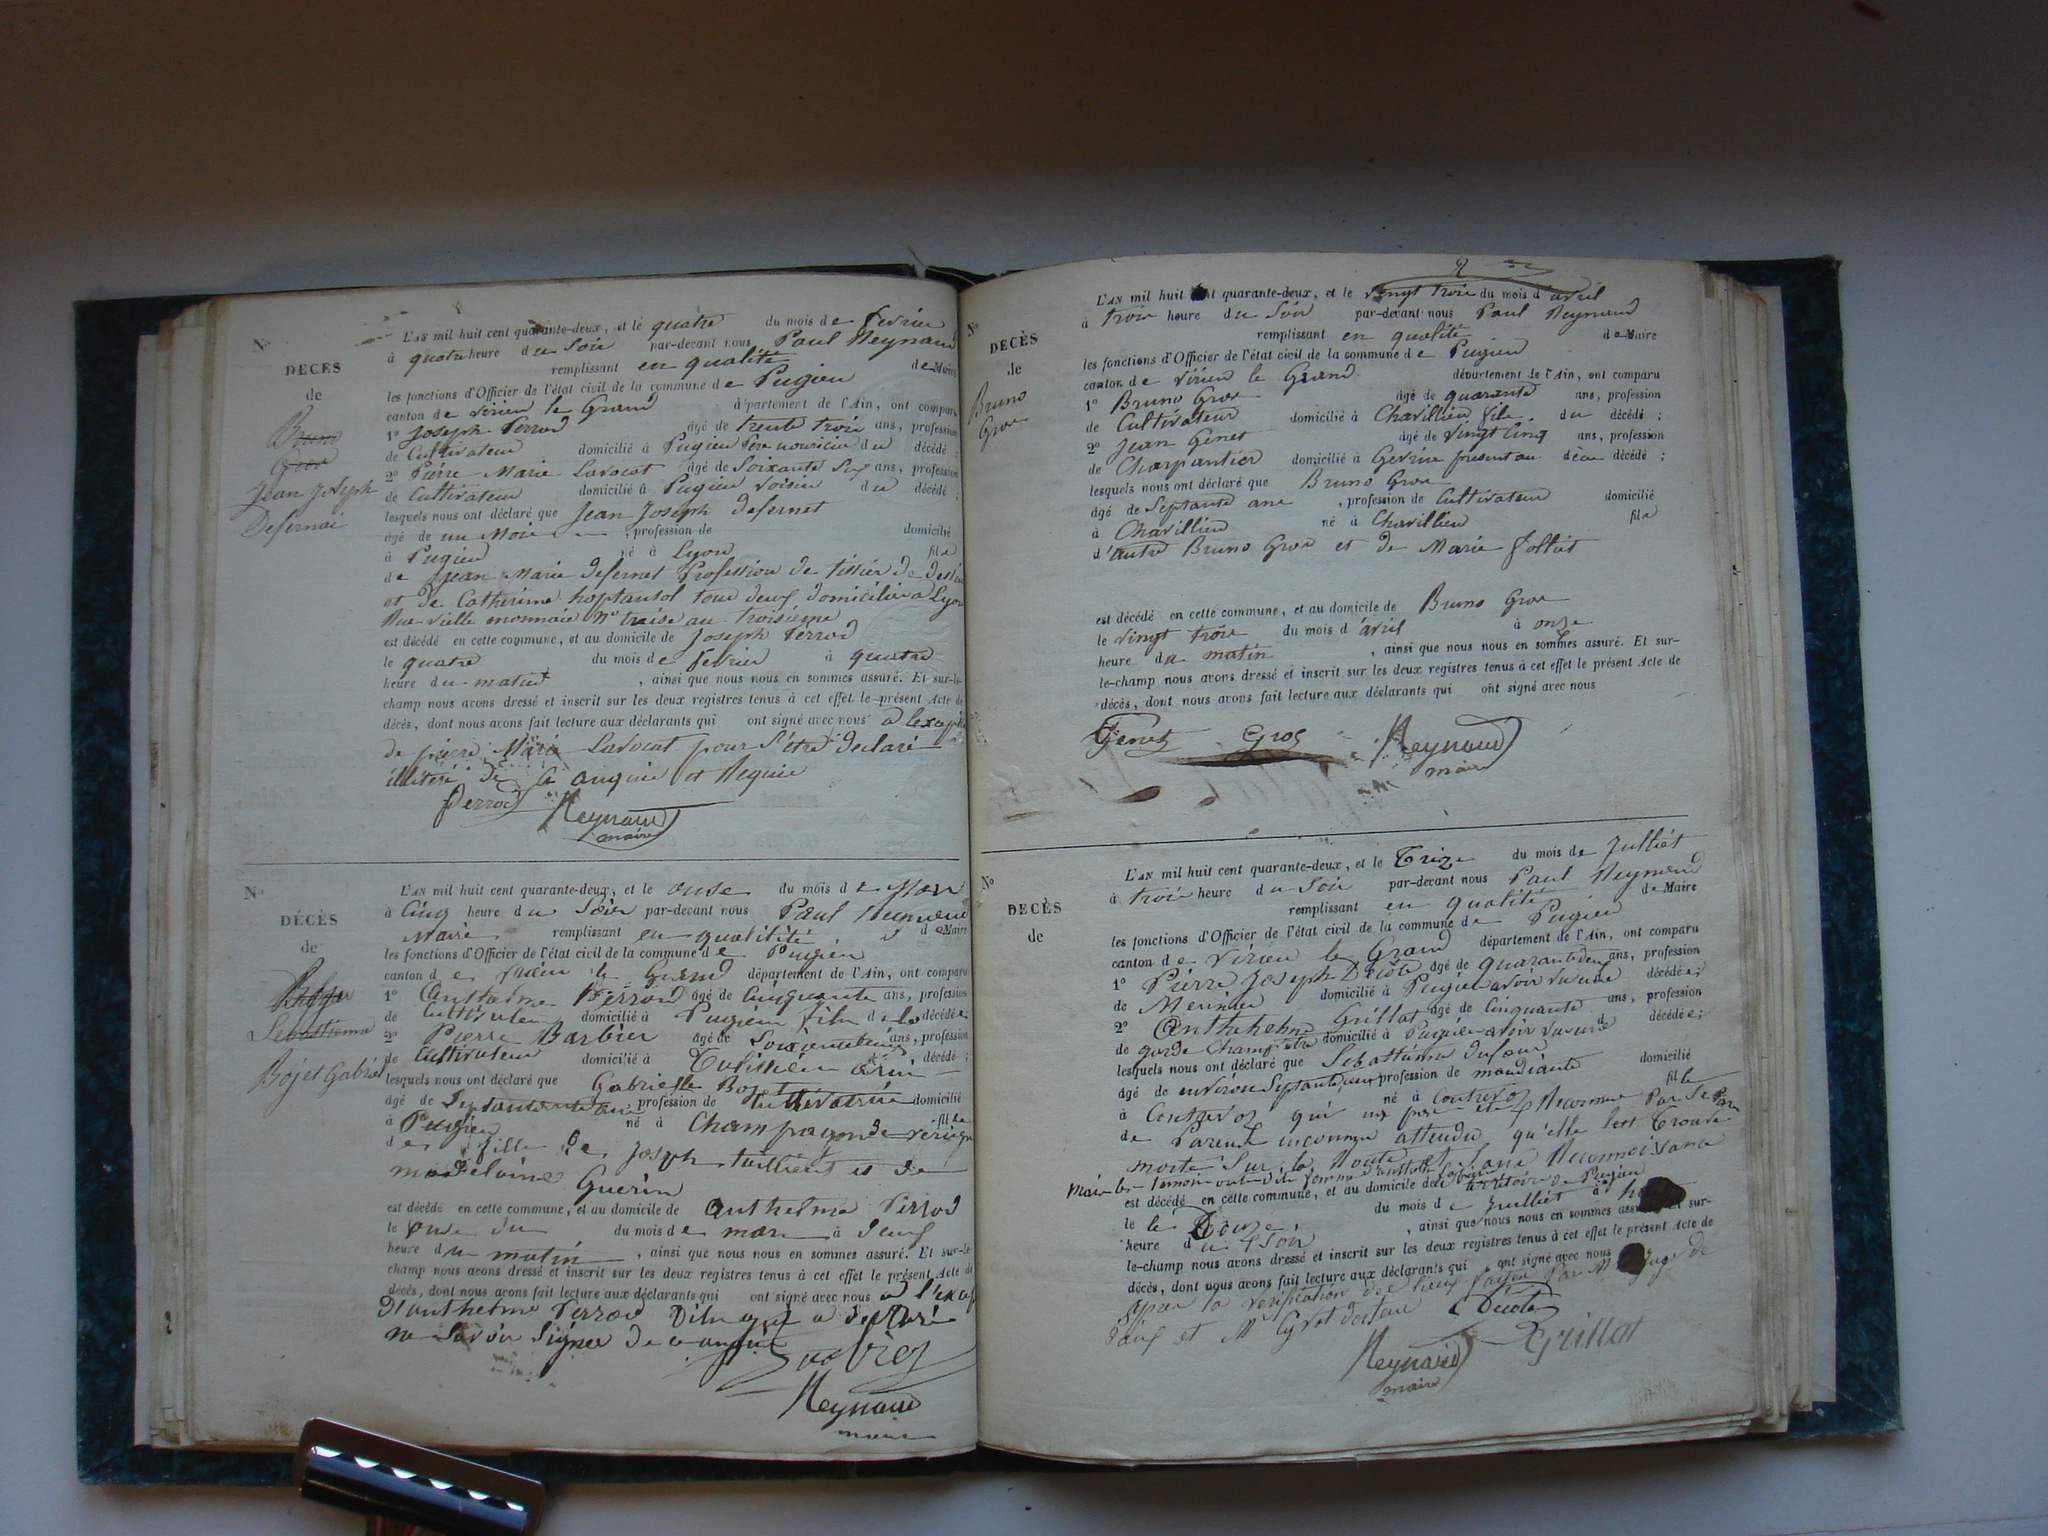 No
DÉCÈS
de
Bruno
Gros
Jean Joseph
Defernai
L'AN mil huit cent quarante-deux, et le quatre du mois de fevrier
à quatre heure du Soir par-devant nous Paul Reynaud
remplissant en qualité de Maire
les fonctions d'Officier de l'état civil de la commune de Pugieu
canton de virieu le Grand département de l'Ain, ont comparu
1° Joseph Perrod âgé de trente trois ans, profession
de Cultivateur domicilié à Pugieu Pere nouricier du décédé ;
2° Pierre Marie Lavocat âgé de Soixante Six ans, profession
de Cultivateur domicilié à Pugieu voisin du décédé ;
lesquels nous ont déclaré que Jean Joseph Defernet
âgé de un Mois , profession de domicilié
à Pugieu né à Lyon fils
de Jean Marie Defernet Profession de tissier de
et de Catherine tous deux domiciliés a Lyon
Rue vielle monnaie N° traise au troisieme
est décédé en cette commune, et au domicile de Joseph Perrod
le quatre du mois de fevrier à quatre
heure du matin , ainsi que nous nous en sommes assuré. Et sur-le-
champ nous avons dressé et inscrit sur les deux registres tenus à cet effet le présent Acte de
décès, dont nous avons fait lecture aux déclarants qui ont signé avec nous a
de pierre Marie Lavocat pour s'etre declaré
illiteré de ce anquie et Requie
Perrod Reynaud
maire
No
DÉCÈS
de
Sebastienne
Bojet Gabriel
L'AN mil huit cent quarante-deux, et le onse du mois de Mars
à Cinq heure du Soir par-devant nous Paul Reynaud
Maire remplissant en qualitité de Maire
les fonctions d'Officier de l'état civil de la commune de Pugieu
canton de virieu le Grand département de l'Ain, ont comparu
1° Anthelme Perrod âgé de Cinquante ans, profession
de Cultivateur domicilié à Pugieu fils de la décédée
2° Pierre Barbier âgé de ans, profession
de Cultivateur domicilié à décédé ;
lesquels nous ont déclaré que Gabrielle Bojet
âgé de profession de Cultivatrice domicilié
à Pugieu né à Champagne fille
de fille de Joseph et de
madelaine Guerin
est décédé en cette commune, et au domicile de Anthelme Perrod
le onse du du mois de mars à
heure du matin , ainsi que nous nous en sommes assuré. Et sur-le-
champ nous avons dressé et inscrit sur les deux registres tenus à cet effet le présent Acte de
décès, dont nous avons fait lecture aux déclarants qui ont signé avec nous a
d'anthelme Perrod qui a declaré
ne savoir signer de ce anquie
Reynaud
maire
No
DÉCÈS
de
Bruno
Gros
L'AN mil huit cent quarante-deux, et le vingt trois du mois d'avril
à trois heure du Soir par-devant nous Paul Reynaud
remplissant en qualité de Maire
les fonctions d'Officier de l'état civil de la commune de Pugieu
canton de virieu le Grand département de l'Ain, ont comparu
1° Bruno Gros âgé de quarante ans, profession
de Cultivateur domicilié à Chavillieu fils du décédé ;
2° Jean Genet âgé de vingt cinq ans, profession
de Charpantier domicilié à present au décédé ;
lesquels nous ont déclaré que Bruno Gros
âgé de Septante ans , profession de Cultivateur domicilié
à Chavillieu né à Chavillieu fils
d'autre Bruno Gros et de Marie
est décédé en cette commune, et au domicile de Bruno Gros
le vingt trois du mois d'avril à onse
heure du matin , ainsi que nous nous en sommes assuré. Et sur-
le-champ nous avons dressé et inscrit sur les deux registres tenus à cet effet le présent Acte de
décès, dont nous avons fait lecture aux déclarants qui ont signé avec nous
Genet Gros Reynaud
maire
No
DÉCÈS
de
L'AN mil huit cent quarante-deux, et le Treize du mois de Julliet
à trois heure du Soir par-devant nous Paul Reynaud
remplissant en qualité de Maire
les fonctions d'Officier de l'état civil de la commune de Pugieu
canton de virieu le Grand département de l'Ain, ont comparu
1° Pierre Joseph Décote âgé de quarante deux ans, profession
de Menieur domicilié à Pugieu avoir vu une décédée ;
2° Anthelme Grillat âgé de Cinquante ans, profession
de garde Champetre domicilié à Pugieu avoir vu une décédée ;
lesquels nous ont déclaré que Sebastienne
âgé de environ Septante profession de mandiante domicilié
à né à fille
de Parents inconnu attendu qu'elle sest trouvé
morte Sur la Route et sans Reconnoissance
est décédé en cette commune, et au domicile de territoire de Pugieu
le le Douze du mois de Julliet à
heure du Soir , ainsi que nous nous en sommes assuré. Et sur-
le-champ nous avons dressé et inscrit sur les deux registres tenus à cet effet le présent Acte de
décès, dont nous avons fait lecture aux déclarants qui ont signé avec nous
apres la verification des lieux Par M Juge de
Paix et M Decote
Grillat
Reynaud
maire